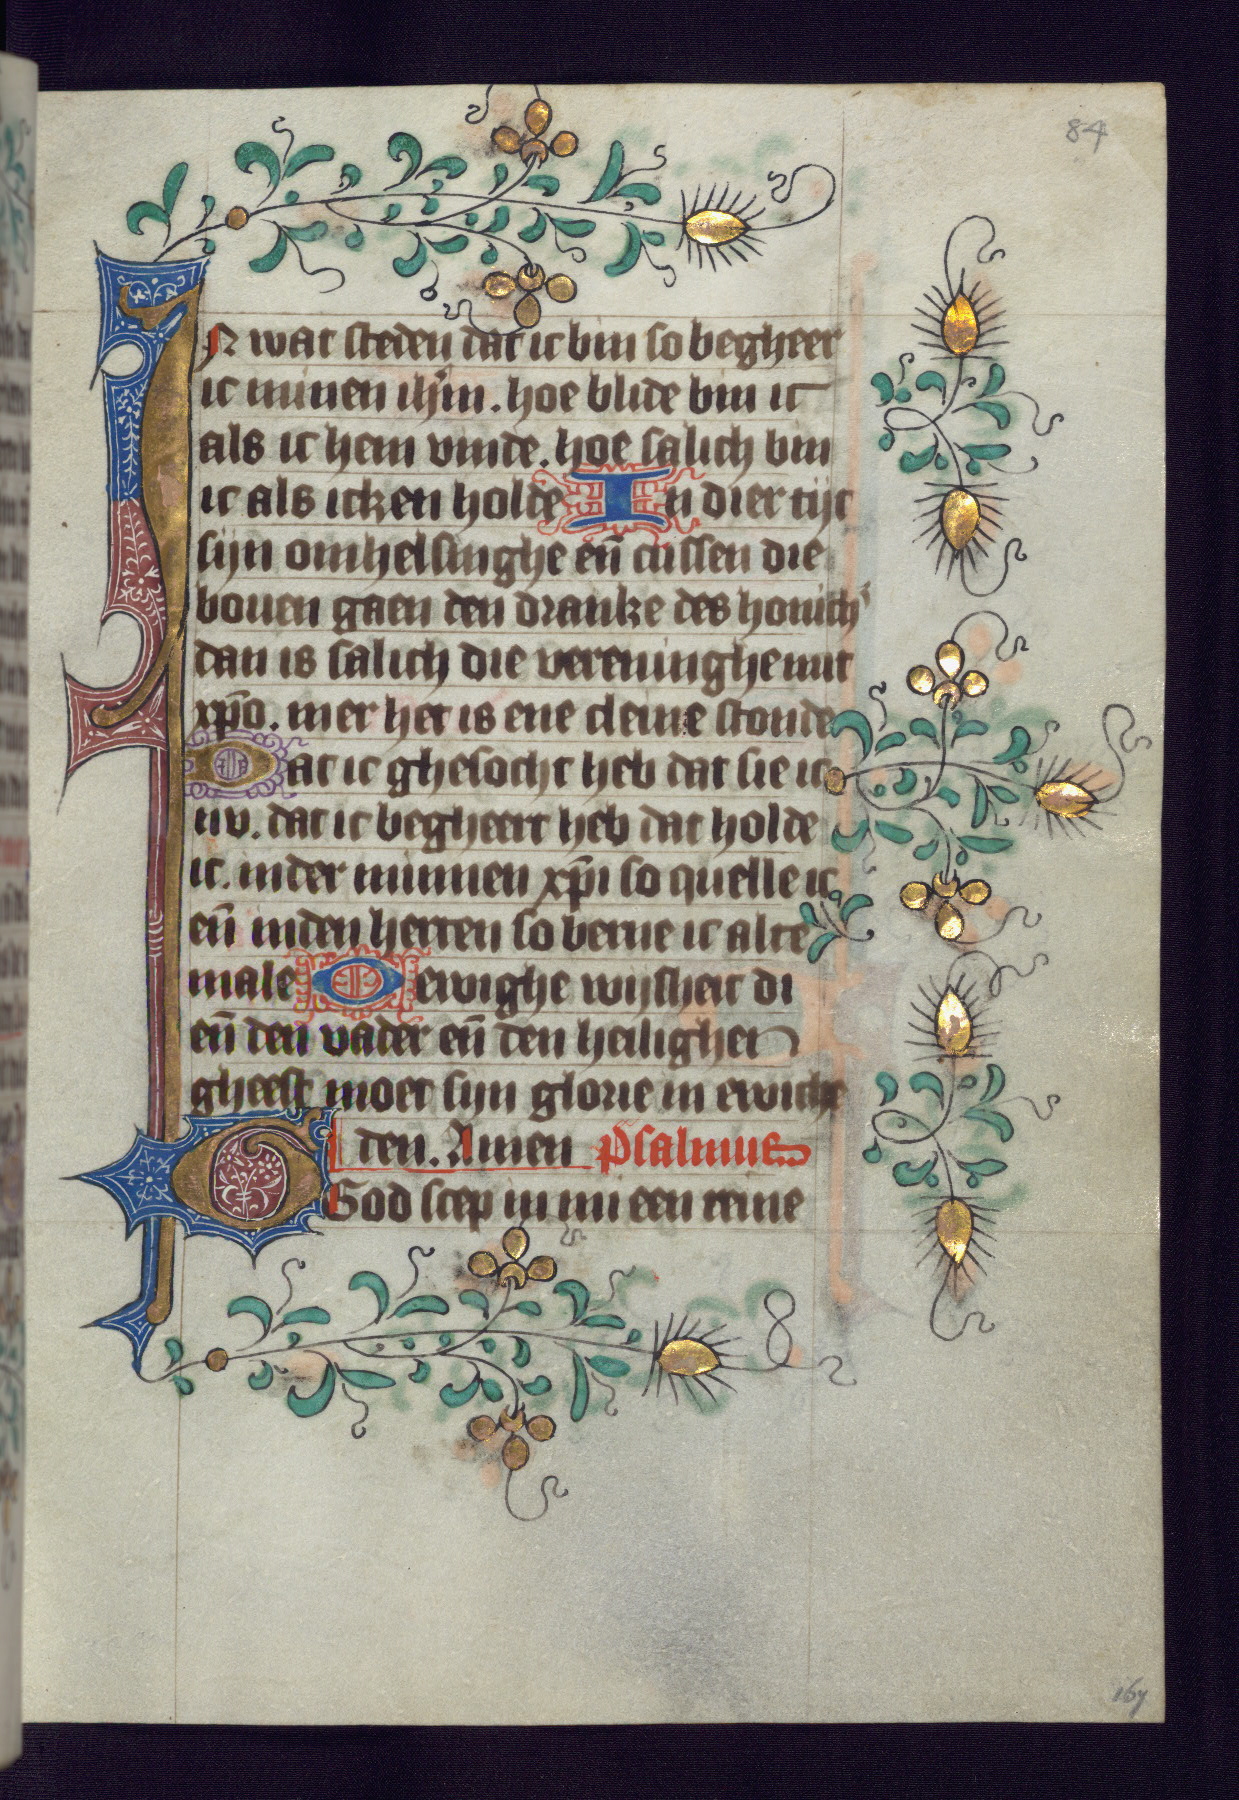 84
IN wat steden dat ic bin so begheer
ic minen ihm̄. hoe blide bin ic
als ic hem vinde. hoe salich bin
ic als icken holde In dier tijt
sijn omhelsinghe eñ cussen die
bouen gaen den dranke des honich
dan is salich die vereninghe mit
xp̄o. mer het is ene cleine stonde
Dat ic ghesocht heb dat sie ic
nv. dat ic begheert heb dat holde
ic. inder minnen xp̄i so quelle ic
eñ inden herten so berne ic alte
male O ewighe wijsheit di
eñ den vader eñ den heilighen
gheest moet sijn glorie in ewiche
den. Amen p̄salmus
O God scep in mi een reine
167